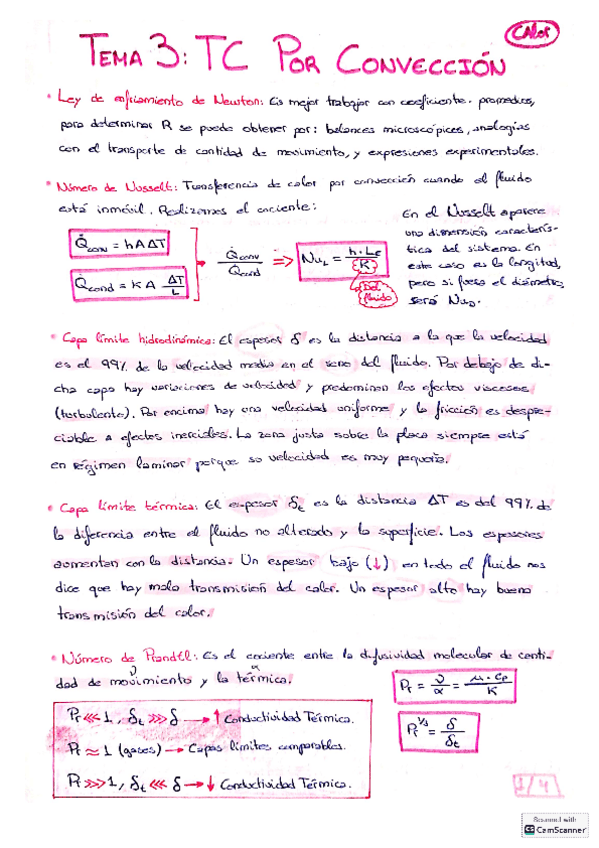 Calor
TEMA 3: TC POR CONVECCIÓN
• Ley de enfriamiento de Newton: Es mejor trabajar con coeficiente. promedios,
para determinar R se puede obtener por: balances microscópicos, analogías
con el transporte de cantidad de movimiento, y expresiones experimentales.
• Número de Nusselt: Transferencia de calor por convección cuando el fluido
está inmóvil. Realizamos el cociente:
Q̇conv = hAΔT
Q̇cond = KA ΔT/L
Q̇conv/Q̇cond ⇒ NuL = h·Lc/K
Del fluido
En el Nusselt aparece
una dimensión caracterís-
tica del sistema. En
este caso es la longitud,
pero si fuera el diámetro,
será NuD.
• Capa límite hidrodinámica: El espesor δ es la distancia a la que la velocidad
es el 99% de la velocidad media en el seno del fluido. Por debajo de di-
cha capa hay variaciones de velocidad y predominan los efectos viscosos
(turbulento). Por encima hay una velocidad uniforme y la fricción es despre-
ciable a efectos inerciales. La zona justo sobre la placa siempre está
en régimen laminar porque su velocidad es muy pequeña.
• Capa límite térmica: El espesor δt es la distancia ΔT es del 99% de
la diferencia entre el fluido no alterado y la superficie. Los espesores
aumentan con la distancia. Un espesor bajo (↓) en todo el fluido nos
dice que hay mala transmisión del calor. Un espesor alto hay buena
transmisión del calor.
• Número de Prandtl: Es el cociente entre la difusividad molecular de canti-
dad de movimiento y la térmica.
ν α
Pr = ν/α = μ·Cp/K
Pr^1/3 = δ/δt
Pr <<< 1, δt >>> δ → ↑ Conductividad Térmica.
Pr ≈ 1 (gases) → Capas límites comparables.
Pr >>> 1, δt <<< δ → ↓ Conductividad Térmica.
1/4
Scanned with
CS CamScanner